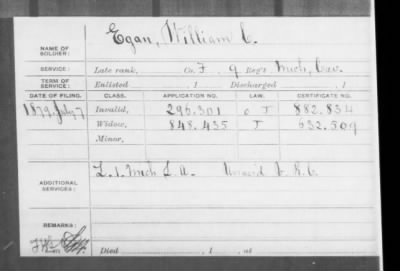 Egan, William C.
NAME OF SOLDIER:
SERVICE: Late rank, Co. F 9 Reg't Mich, Cav.
TERM OF SERVICE: Enlisted , 1 Discharged , 1
DATE OF FILING. CLASS. APPLICATION NO. LAW. CERTIFICATE NO.
1879, July 7 Invalid, 296.301 882.834
Widow, 848.435 632.509
Minor,
ADDITIONAL SERVICES: L. 1. Mich L. A. V. R. C.
REMARKS:
Died , 1 , at